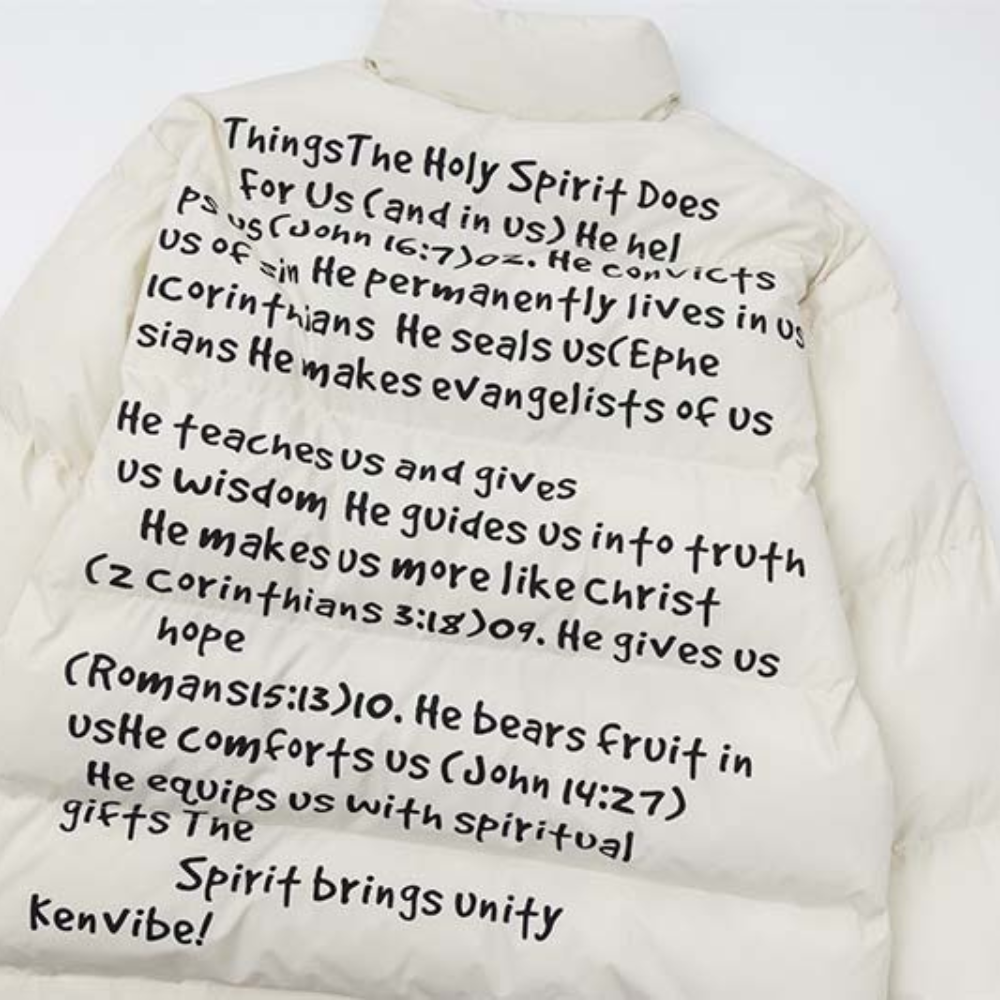 ThingsThe Holy Spirit Does
for Us (and in us) He hel
ps us (John 16:7)02. He convicts
us of sin He permanently lives in us
1Corinthians He seals us(Ephe
sians He makes evangelists of us
He teaches us and gives
us wisdom He guides us into truth
He makes us more like Christ
(2 Corinthians 3:18)09. He gives us
hope
(Romans15:13)10. He bears fruit in
usHe comforts us (John 14:27)
He equips us with spiritual
gifts The
Spirit brings unity
KenVibe!